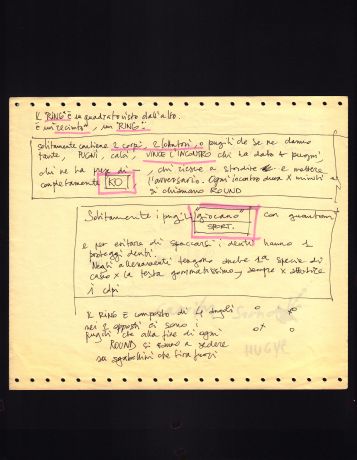 IL "RING" È un quadrato visto dall'alto.
È un "recinto", un "RING".
solitamente contiene 2 corpi, 2 lottatori, o pugili che se ne danno
tante, PUGNI, calci, VINCE L'INCONTRO chi ha dato + pugni
chi ne ha prese di , chi riesce a stordire e mettere
completamente KO l'avversario. Ogni incontro dura X minuti e
si chiamano ROUND
Solitamente i pugili "giocano" con guantoni
SPORT.
e per evitare di spaccarsi i denti hanno 1
proteggi denti.
Negli allenamenti tengono anche 1a specie di
casco x la testa gommatissimo, sempre x attutire
i colpi
IL RING È composto di 4 angoli
nei 2 opposti ci sono i
pugili che alla fine di ogni
ROUND si vanno a sedere
sugli sgabellini che tira fuori